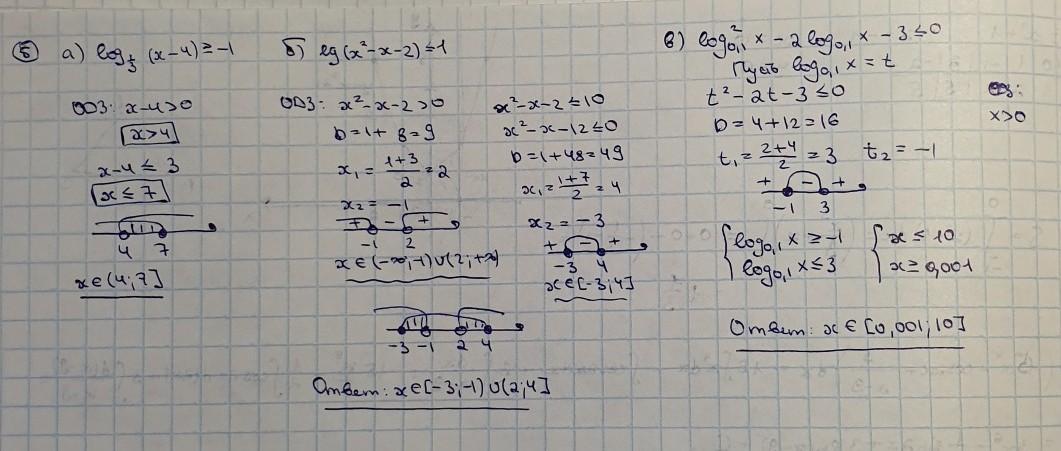 ⑤ а) log₁/₃ (x-4) ≥ -1
ОДЗ: x-4>0
x>4
x-4 ≤ 3
x ≤ 7
4 7
x∈(4;7]
б) lg(x²-x-2) ≤ 1
ОДЗ: x²-x-2>0
D=1+8=9
x₁ = (1+3)/2 = 2
x₂ = -1
+ - +
-1 2
x∈(-∞;-1)∪(2;+∞)
x²-x-2 ≤ 10
x²-x-12 ≤ 0
D=1+48=49
x₁ = (1+7)/2 = 4
x₂ = -3
+ - +
-3 4
x∈[-3;4]
-3 -1 2 4
Ответ: x∈[-3;-1)∪(2;4]
в) log²₀,₁ x - 2 log₀,₁ x - 3 ≤ 0
Пусть log₀,₁ x = t
t² - 2t - 3 ≤ 0
D = 4+12 = 16
t₁ = (2+4)/2 = 3 t₂ = -1
+ - +
-1 3
{ log₀,₁ x ≥ -1 { x ≤ 10
log₀,₁ x ≤ 3 x ≥ 0,001
Ответ: x∈[0,001;10]
ОДЗ:
x>0